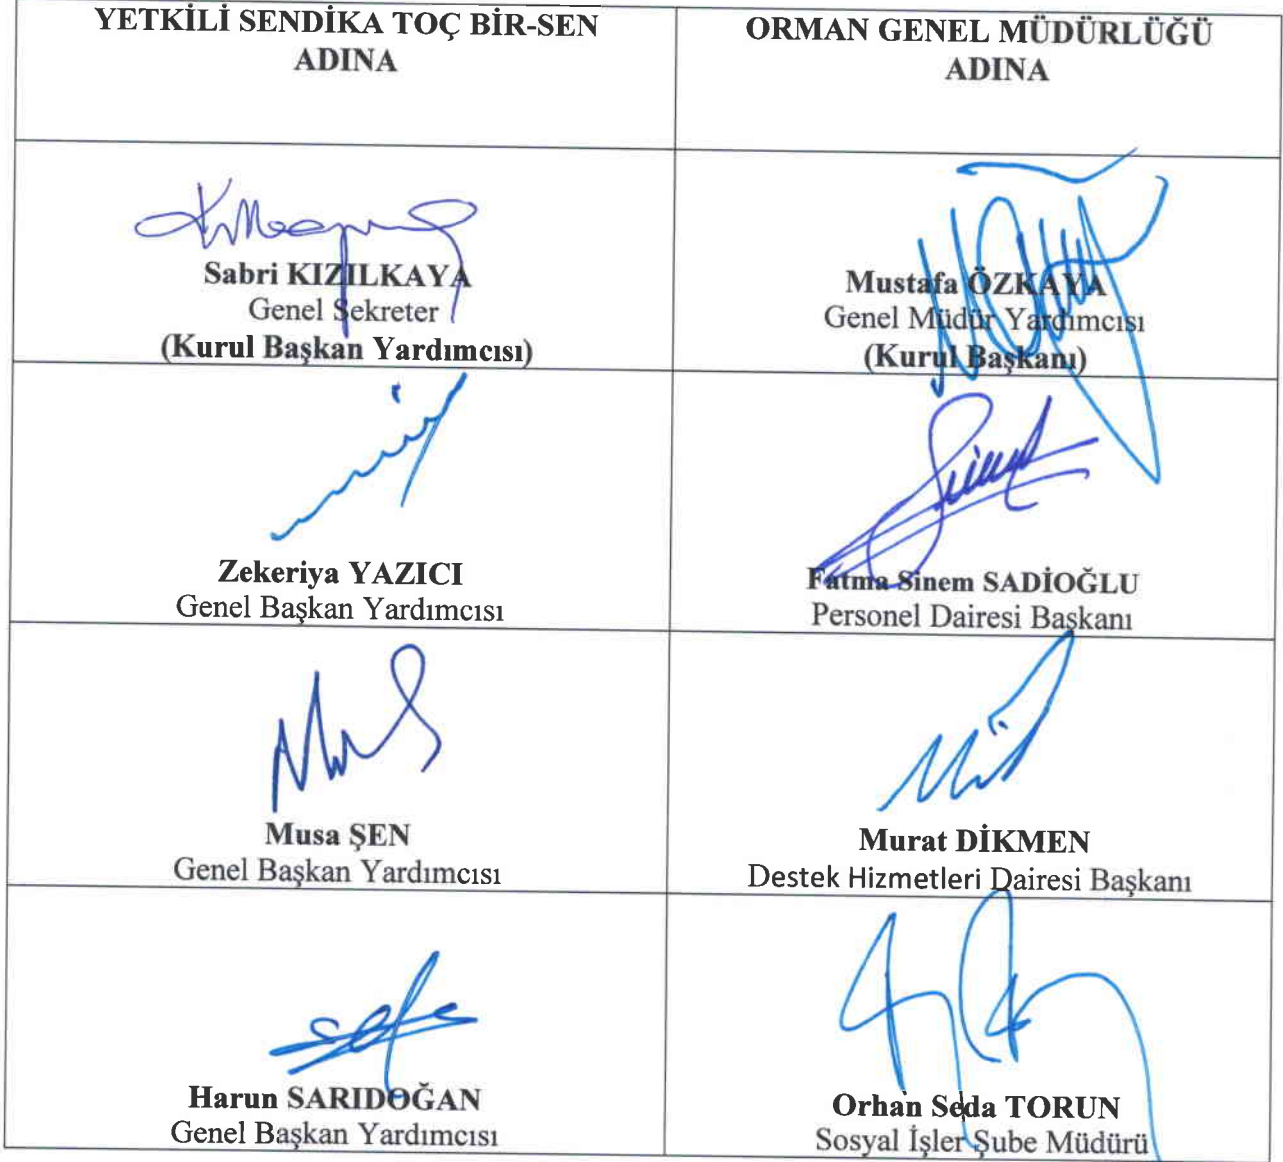 YETKİLİ SENDİKA TOÇ BİR-SEN
ADINA
ORMAN GENEL MÜDÜRLÜĞÜ
ADINA
Sabri KIZILKAYA
Genel Sekreter
(Kurul Başkan Yardımcısı)
Mustafa ÖZKAYA
Genel Müdür Yardımcısı
(Kurul Başkanı)
Zekeriya YAZICI
Genel Başkan Yardımcısı
Fatma Sinem SADİOĞLU
Personel Dairesi Başkanı
Musa ŞEN
Genel Başkan Yardımcısı
Murat DİKMEN
Destek Hizmetleri Dairesi Başkanı
Harun SARIDOĞAN
Genel Başkan Yardımcısı
Orhan Seda TORUN
Sosyal İşler Şube Müdürü